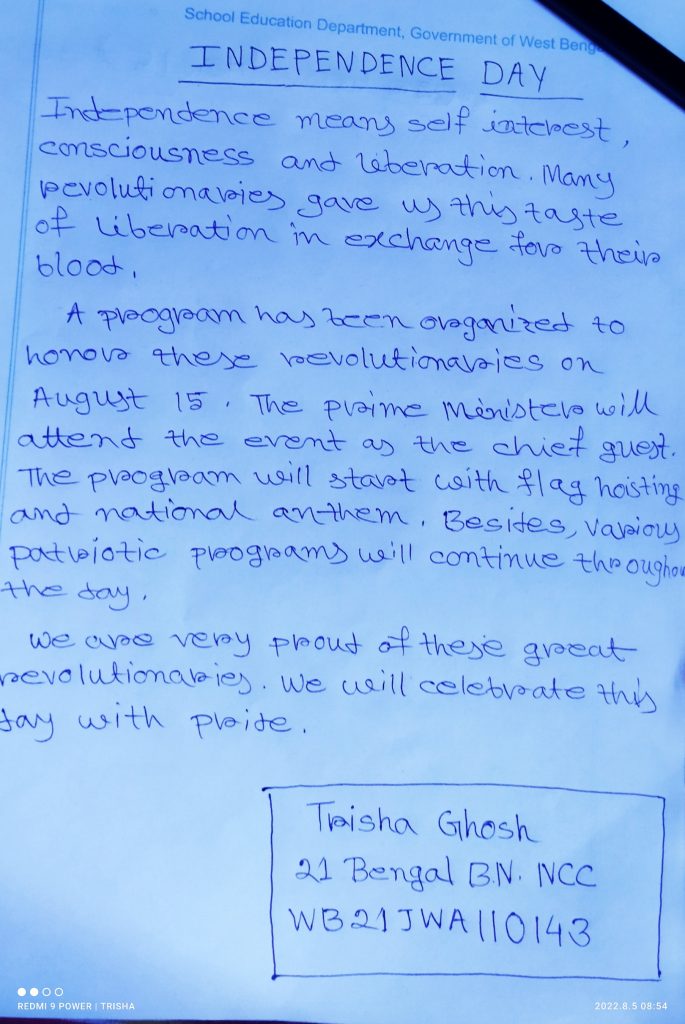 School Education Department, Government of West Beng
INDEPENDENCE DAY
Independence means self interest,
consciousness and liberation. Many
revolutionaries gave us this taste
of liberation in exchange for their
blood.
A program has been organized to
honor these revolutionaries on
August 15. The prime Minister will
attend the event as the chief guest.
The program will start with flag hoisting
and national anthem. Besides, various
patriotic programs will continue throughou
the day.
We are very proud of these great
revolutionaries. We will celebrate this
day with pride.
Trisha Ghosh
21 Bengal B.N. NCC
WB21JWA110143
REDMI 9 POWER | TRISHA
2022.8.5 08:54